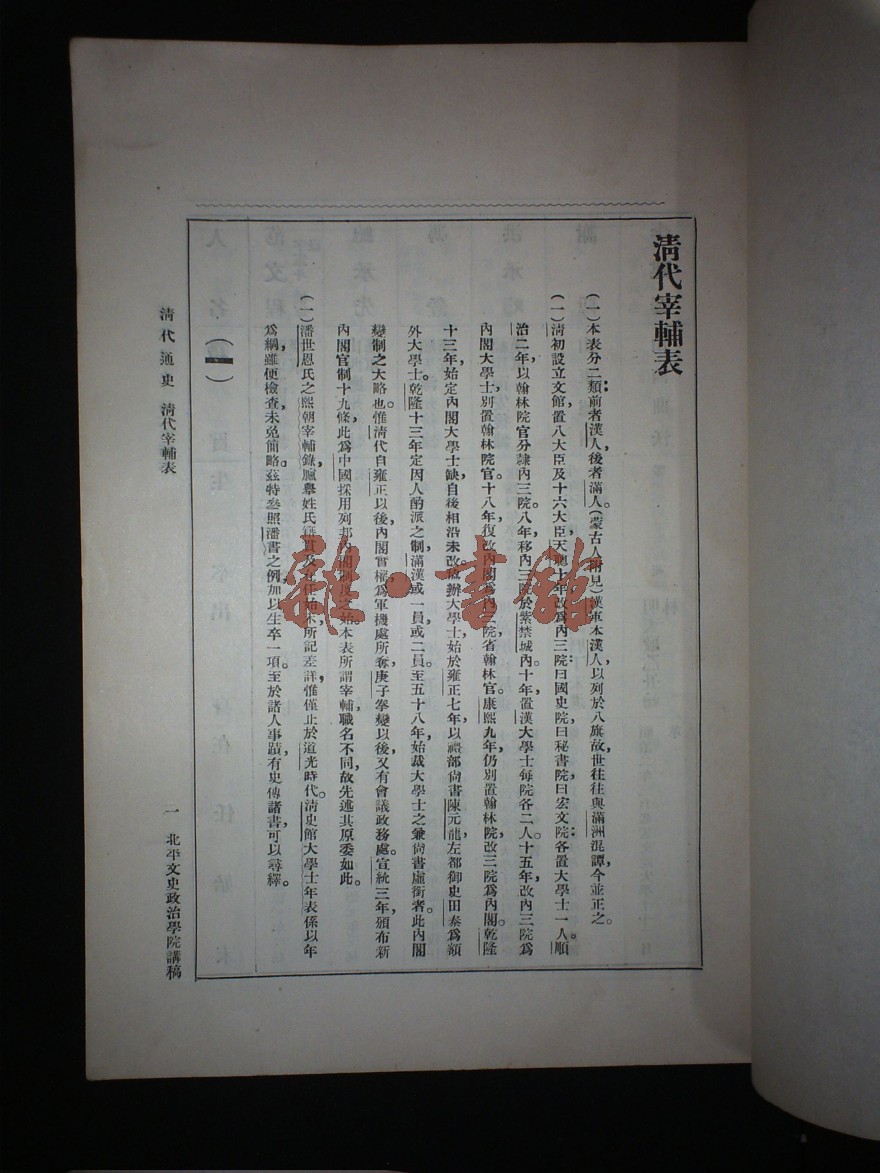 清代宰輔表
(一)本表分二類:前者漢人,後者滿人。(蒙古人附見)漢軍本漢人,以列於八旗故,世往往與滿洲混譚,今並正之。
(一)清初設立文館,置八大臣及十六大臣,天聰十年改爲內三院:曰國史院,曰秘書院,曰宏文院;各置大學士一人。順
治二年,以翰林院官分隸內三院。八年,移內三院於紫禁城內。十年,置漢大學士每院各二人。十五年,改內三院爲
內閣大學士,別置翰林院官。十八年,復改內閣爲內三院,省翰林官。康熙九年,仍別置翰林院,改三院爲內閣。乾隆
十三年,始定內閣大學士缺,自後相沿未改。協辦大學士,始於雍正七年,以禮部尙書陳元龍左都御史田泰爲額
外大學士。乾隆十三年定因人酌派之制,滿漢或一員,或二員。至五十八年,始裁大學士之兼尙書虛銜者。此內閣
變制之大略也。惟清代自雍正以後,內閣實權,爲軍機處所奪,庚子拳變以後,又有會議政務處。宣統三年,頒布新
內閣官制十九條,此爲中國採用列邦內閣制度之始。本表所謂宰輔,職名不同,故先述其原委如此。
(一)潘世恩氏之熙朝宰輔錄,臚擧姓氏籍貫及分任始末,所記差詳,惟僅止於道光時代。清史館大學士年表係以年
爲綱,雖便檢查,未免簡略。茲特參照潘書之例,加以生卒一項。至於諸人事蹟,有史傳諸書,可以尋繹。
(一)
清代通史 清代宰輔表
一 北平文史政治學院講稿
雜·書館